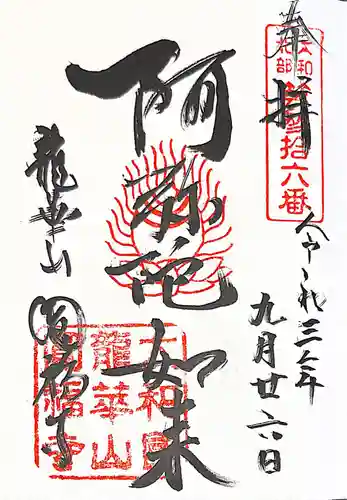 奉拝
大和
北部
拾六番
令和三年
九月廿六日
阿弥陀如来
龍華山
圓福寺
大和國
龍華山
圓福寺